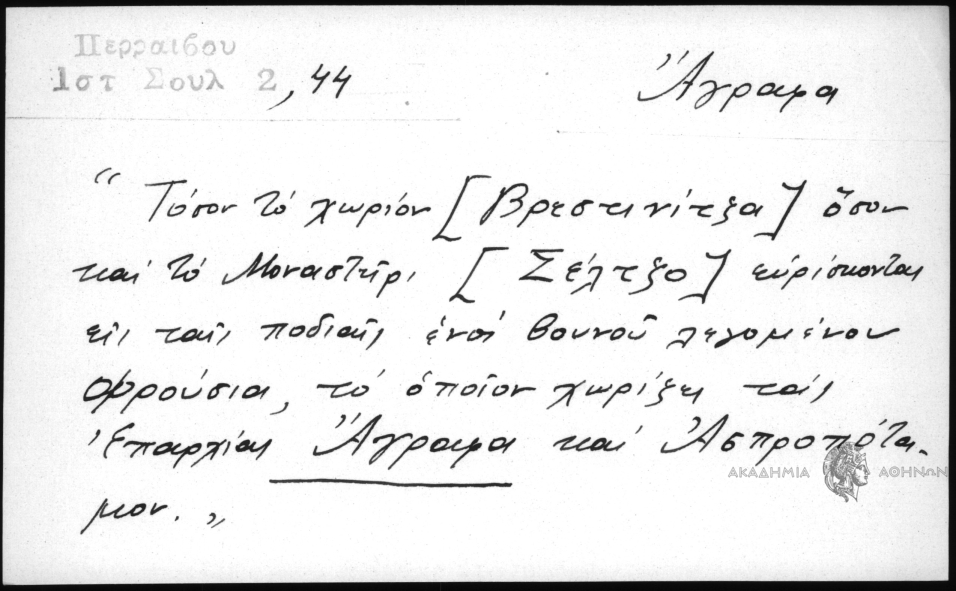 Περραιβου
Ιστ Σουλ 2, 44
Ἄγραφα
“ Τόσον τό χωρίον [Βρεστενίτζα] ὅσον
καί τό Μοναστῆρι [Σέλτζο] εὑρίσκονται
εἰς ταῖς ποδιαῖς ἑνός βουνοῦ λεγομένου
Φρούσια, τό ὁποῖον χωρίζει τάς
Ἐπαρχίας Ἄγραφα καί Ἀσπροπότα-
μον. „
ΑΚΑΔΗΜΙΑ ΑΘΗΝΩΝ